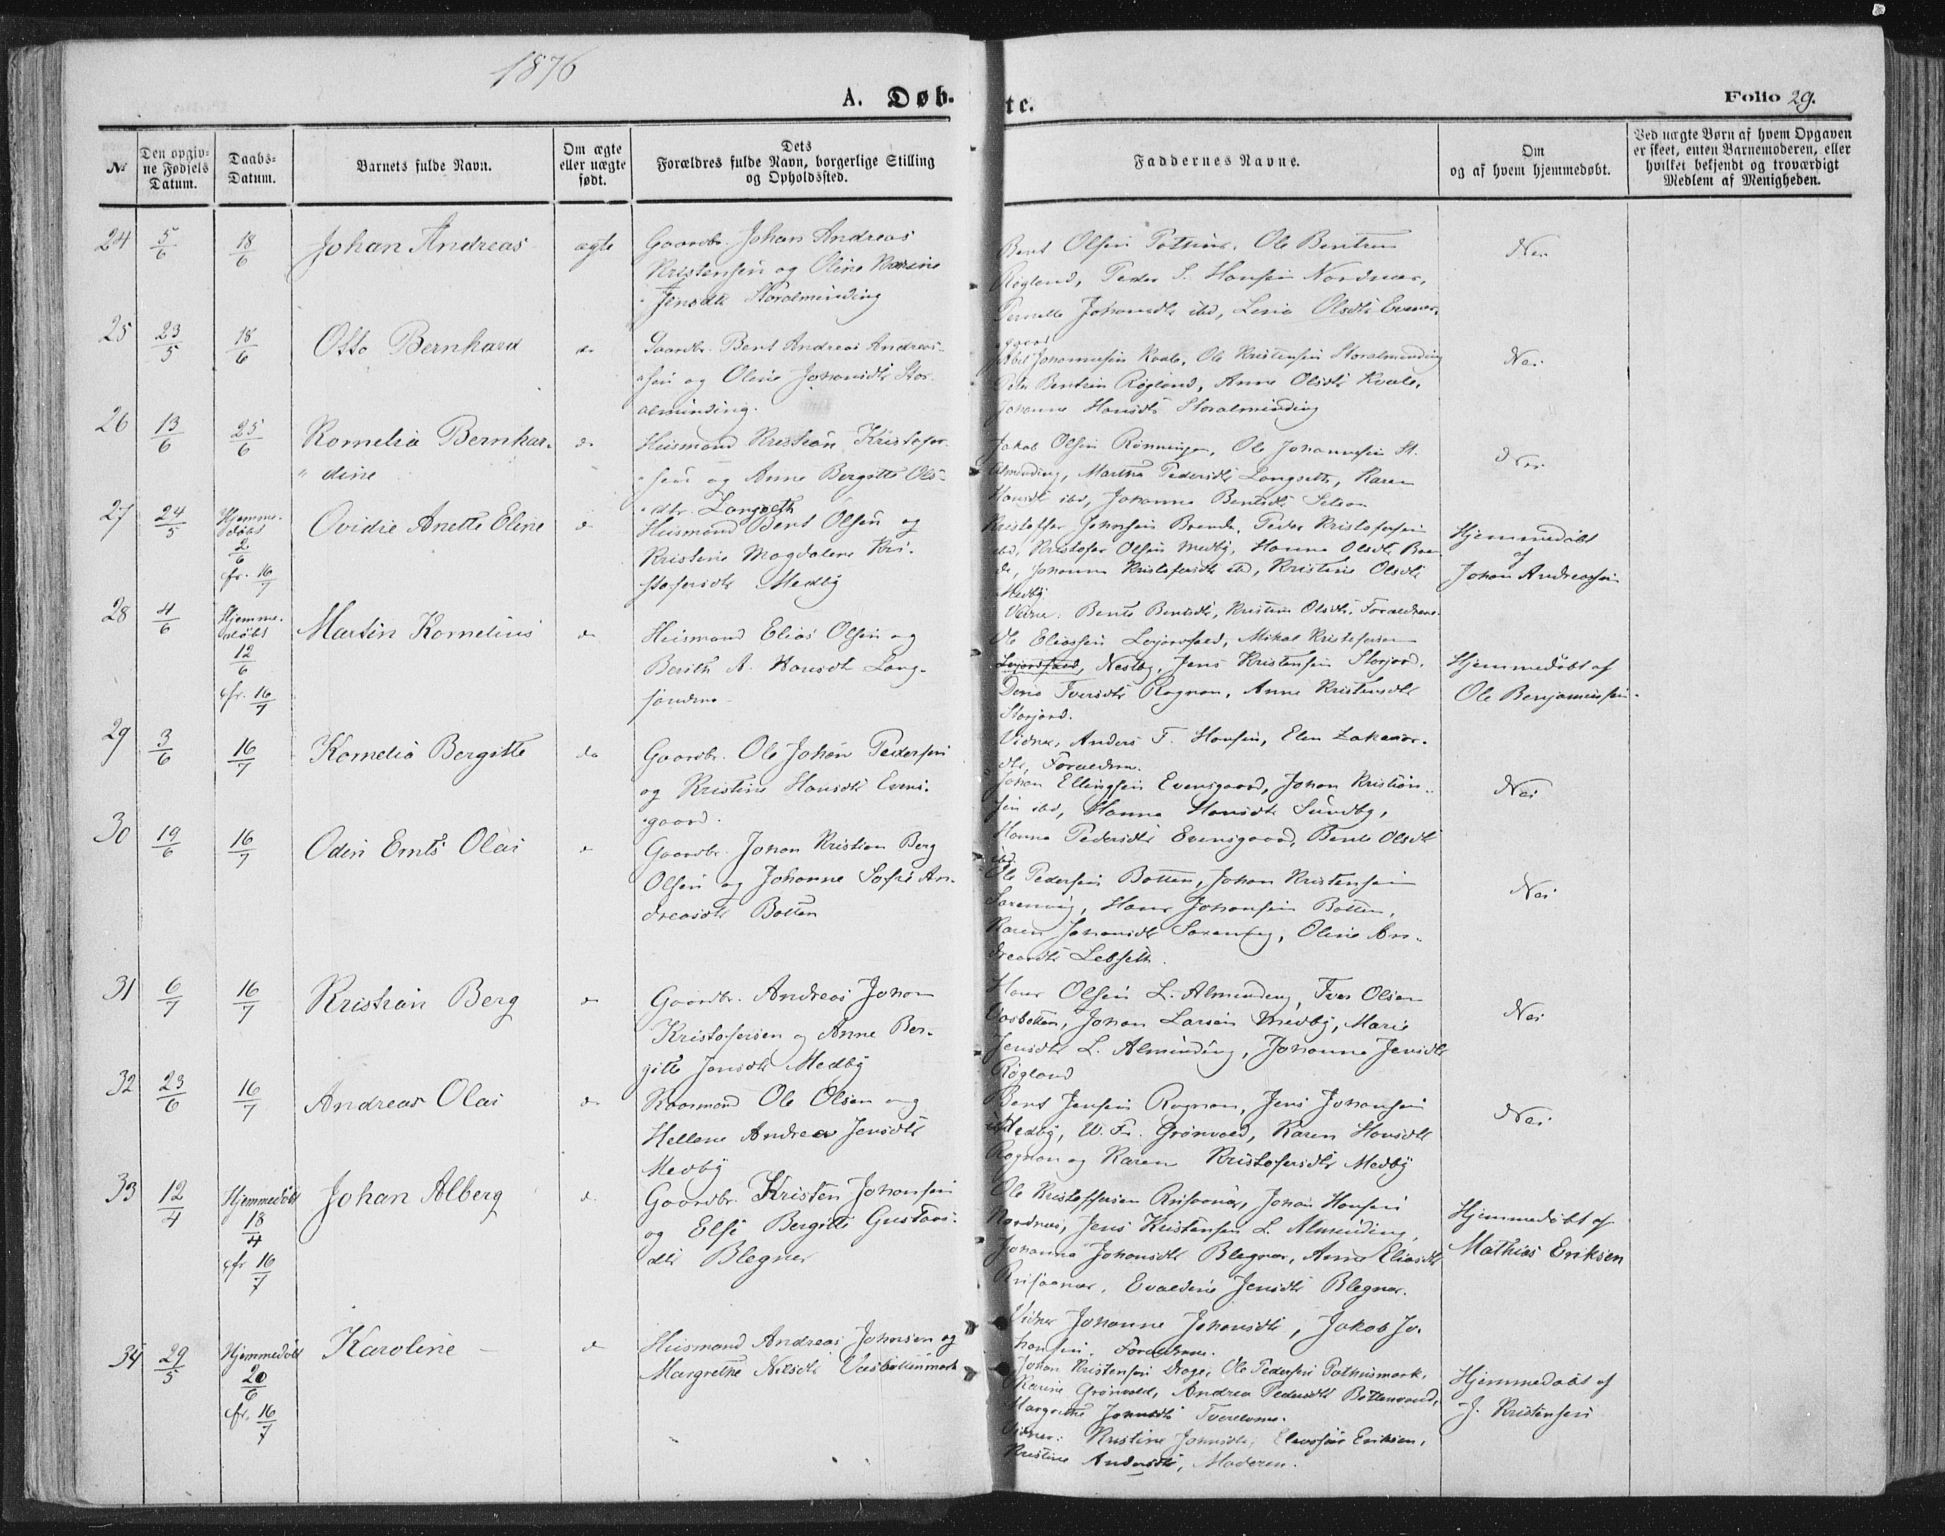 1876
A. Døbte.
Folio 29.
№
Den opgiv-
ne Fødsels
Datum.
Daabs-
Datum.
Barnets fulde Navn.
Om ægte
eller uægte
født.
Dets
Forældres fulde Navn, borgerlige Stilling
og Opholdssted.
Faddernes Navne.
Om
og af hvem hjemmedøbt.
Ved uægte Børn af hvem Opgaven
er skeet, enten Barnemoderen, eller
hvilket bekjendt og troværdigt
Medlem af Menigheden.
24 5/6 18/6 Johan Andreas ægte
Gaardbr. Johan Andreas
Kristensen og Oline Karine
Jensdtr Storalminding
Bent Olsen Pothus, Ole Bentsen
Røgland, Peder S. Hansen Nordnæs,
Pernelle Johansdtr ibd, Lena Olsdtr Evens-
gaard
Nei
25 23/5 18/6 Otto Bernhard do
Gaardbr. Bent Andreas Andreas-
sen og Oline Johansdtr Stor-
alminding.
Abel Johannesen Kvale, Ole Kristensen Storalminding
Peter Bentsen Røgland, Anne Olsdtr Kvale,
Johanne Hansdtr Storalminding
Nei
26 13/6 25/6 Kornelia Bernhar-
dine do
Husmand Kristian Kristofer-
sen og Anne Bergitte Ols-
dtr. Langseth
Jakob Olsen Rønningen, Ole Johannesen St.
Alminding, Martha Pedersdtr Langseth, Karen
Hansdtr ibd, Johanna Bentsdtr
Nei
27 24/5 Hjemme-
døbt
2/6
fr. 16/7
Ovidie Anette Eline d
Husmand Bent Olsen og
Kristine Magdalene Kri-
stofersdtr Medby
Kristoffer Johnsen Brende, Peder Kristofersen
ibd, Kristofer Olsen Medby, Hanna Olsdtr
Johanna Kristofersdtr ibd, Kristine Olsdtr
Medby
Vidne. Bente Bentsdtr, Kristine Olsdtr. Forældrene
Hjemmedøbt
af
Johan Andreassen
28 4/6 Hjemme-
døbt
12/6
fr. 16/7
Martin Kornelius d
Husmand Elias Olsen og
Berith A. Hansdtr Lang-
sanderne
Ole Eliassen Lejordfald, Mikal Kristofersen
Nestby, Jens Kristensen Storjord,
Dorea Iversdtr Rognan, Anne Kristensdtr
Storjord.
Vidner, Anders T. Hansen, Elen Zakarias-
dtr, Forældrene.
Hjemmedøbt af
Ole Benjaminsen
29 3/6 16/7 Kornelia Bergitte do
Gaardbr. Ole Johan Pedersen
og Kristine Hansdtr Evens-
gaard.
Johan Ellingsen Evensgaard, Johan Kristian-
sen ibd, Hanna Hansdtr Sundby,
Hanna Pedersdtr Evensgaard, Bente Olsdtr
ibd
Nei
30 19/6 16/7 Odin Ernts Olai d
Gaardbr. Johan Kristian Berg
Olsen og Johanne Sofie An-
dreasdtr Botten
Ole Pedersen Botten, Johan Kristensen
Saxenvig, Hans Johansen Botten,
Karen Johansdtr Saxenvig, Oline An-
dreasdtr Lebseth.
Nei
31 6/7 16/7 Kristian Berg d
Gaardbr. Andreas Johan
Kristofersen og Anne Ber-
gitte Jensdtr Medby
Hans Olsen L. Alminding, Iver Olsen
Vasbotten, Johan Larsen Medby, Marie
Jensdtr L. Alminding, Johanna Jensdtr
Røgland
Nei
32 23/6 16/7 Andreas Olai d
Kaarmand Ole Olsen og
Hellene Andrea Jensdtr
Medby
Bent Jensen Rognan, Jens Johansen
Medby, W. Fr. Grønvold, Karen Hansdtr
Rognan og Karen Kristofersdtr Medby
Nei
33 12/4 Hjemmedøbt
18/4
fr 16/7
Johan Alberg d
Gaardbr. Kristen Johansen
og Else Bergitte Gustavs-
dtr Blegner
Ole Kristoffersen Rusaanæs, Johan Hansen
Nordnæs, Jens Kristensen L. Alminding,
Johanna Johansdtr Blegnær, Anna Eliasdtr
Rusaanær, Evaldine Jensdtr Blegnær.
Vidner Johanne Johansdtr, Jakob Jo-
hansen, Forældrene.
Hjemmedøbt af
Mathias Eriksen
34 29/5 Hjemmedøbt
20/6
fr. 16/7
Karoline d
Husmand Andreas Johnsen og
Margrethe Nilsdtr Vasbottenmark
Johan Kristensen Drage, Ole Pedersen Pothusmark,
Karine Grønvold, Andrea Pedersdtr Bottenvand,
Margrethe Johnsdtr
Vidner: Kristine Johnsdtr, Eriksen,
Kristine Andersdtr, Moderen.
Hjemmedøbt af
J. Kristensen